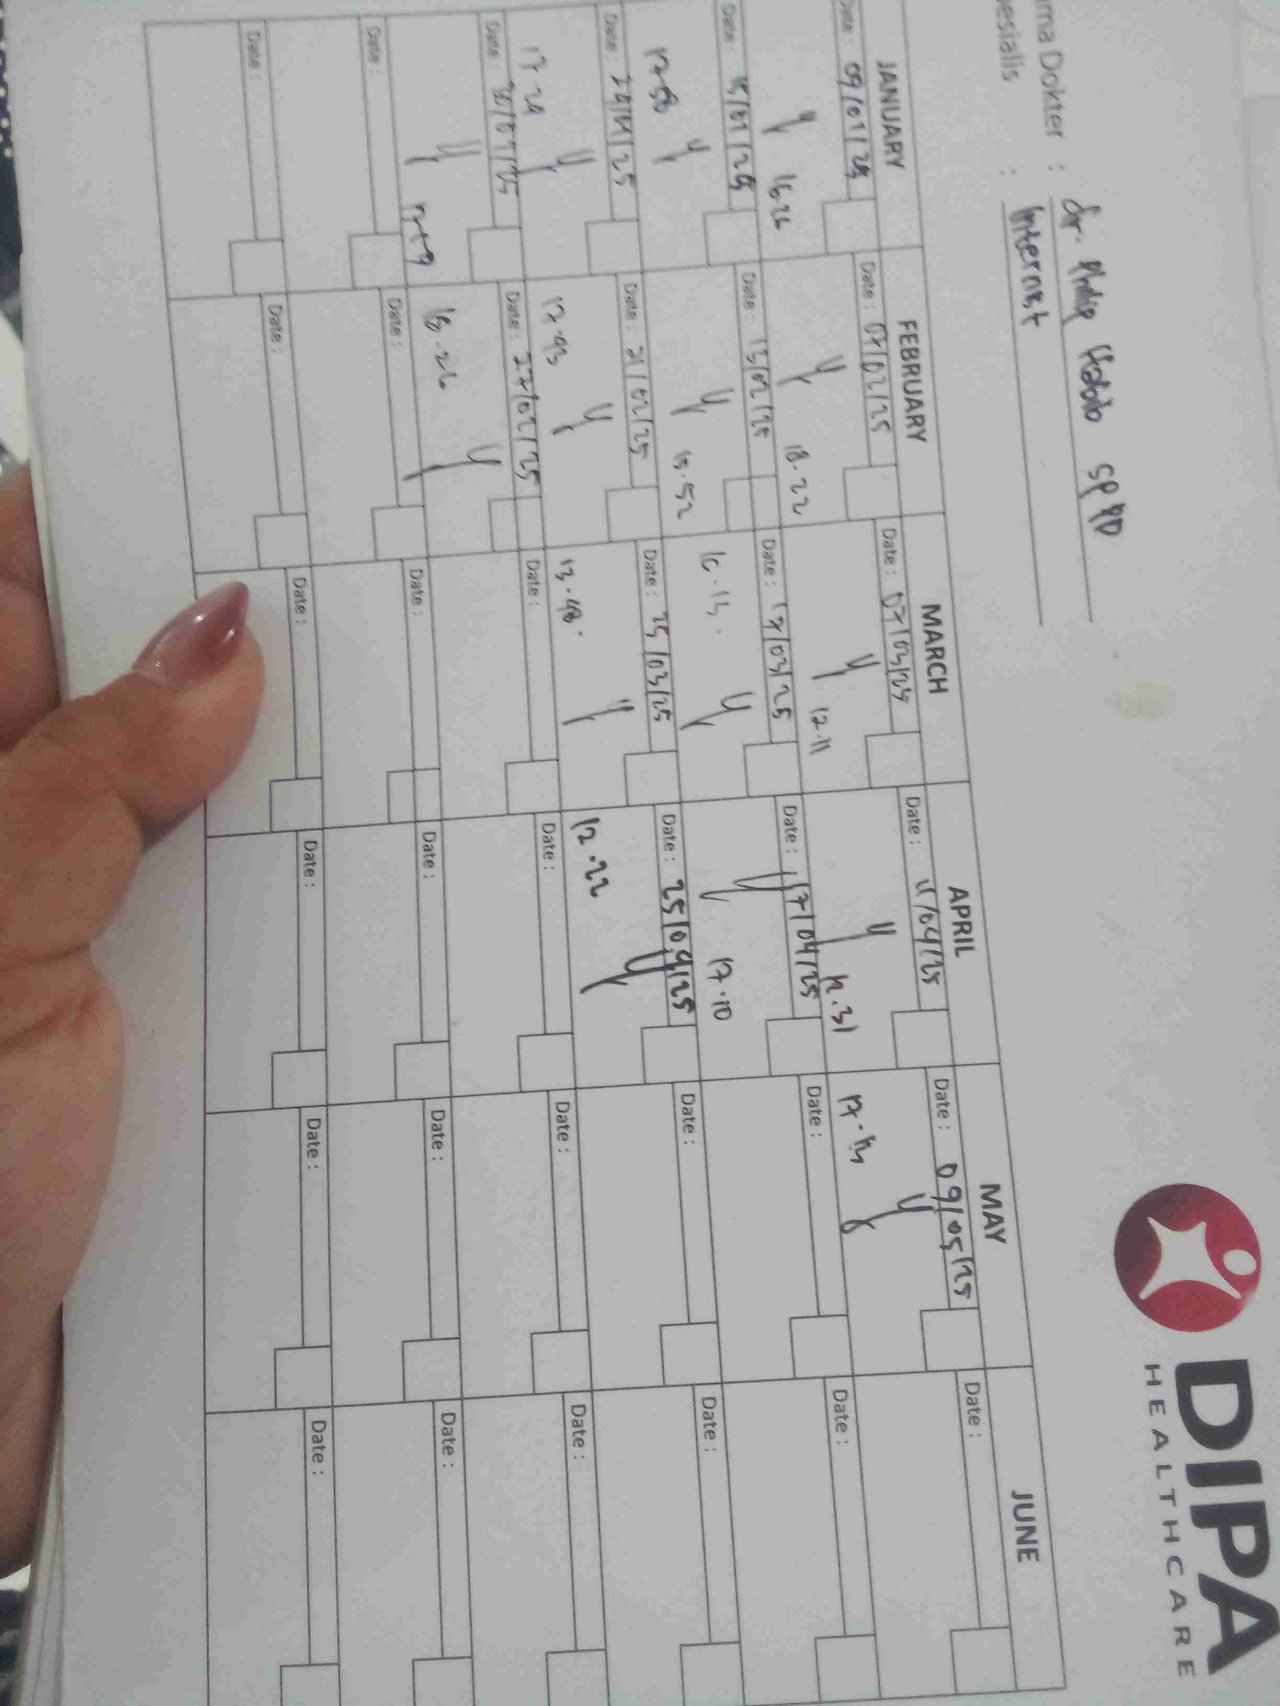 DIPA
HEALTHCARE
ma Dokter : dr. Philip Habib SpPD
esialis : Internist
JANUARY FEBRUARY MARCH APRIL MAY JUNE
Date : 09/01/25 Date : 07/02/25 Date : 07/03/25 Date : 11/04/25 Date : 09/05/25 Date :
16.26 18.22 12.11 12.31
Date : 15/01/25 Date : 13/02/25 Date : 17/03/25 Date : 17/04/25 Date : Date :
17.58 15.52 16.15. 17.10
Date : 24/01/25 Date : 21/02/25 Date : 25/03/25 Date : 25/04/25 Date : Date :
17.29 17.43 13.48. 12.22
Date : 30/01/25 Date : 27/02/25 Date : Date : Date : Date :
18.26
Date : Date : Date : Date : Date : Date :
Date : Date : Date : Date : Date : Date :